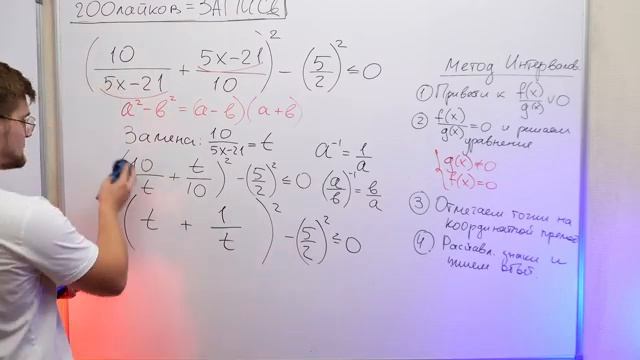 200 лайков = ЗАПИСЬ
(10/(5x-21) + (5x-21)/10)² - (5/2)² ≤ 0
a² - b² = (a - b)(a + b)
Замена: 10/(5x-21) = t
(10/t + t/10)² - (5/2)² ≤ 0
(t + 1/t)² - (5/2)² ≤ 0
a⁻¹ = 1/a
(a/b)⁻¹ = b/a
Метод Интервалов
① Привести к f(x)/g(x) ∨ 0
② f(x)/g(x) = 0 и решаем
уравнение
{ g(x) ≠ 0
f(x) = 0
③ Отмечаем точки на
координатной прямой
④ Расставл. знаки и
пишем ответ.